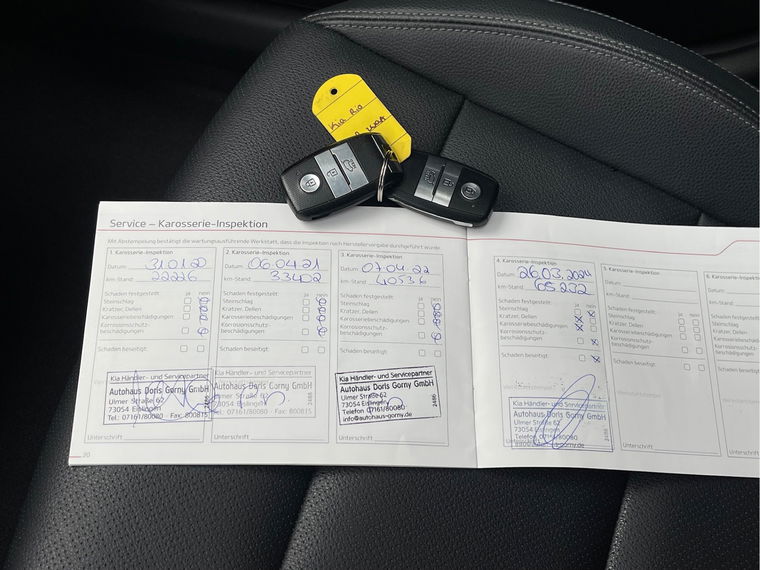 Kia Rio
Service – Karosserie-Inspektion
Mit Abstempelung bestätigt die wartungsausführende Werkstatt, dass die Inspektion nach Herstellervorgabe durchgeführt wurde.
1. Karosserie-Inspektion
Datum 31.01.20
km-Stand 22226
Schaden festgestellt: ja nein
Steinschlag
Kratzer, Dellen
Karosseriebeschädigungen
Korrosionsschutz-
beschädigungen
Schaden beseitigt:
Kia Händler- und Servicepartner
Autohaus Doris Gorny GmbH
Ulmer Straße 62
73054 Eislingen
Tel.: 07161/80080 Fax: 800815
2486
Unterschrift
90
2. Karosserie-Inspektion
Datum 06.04.21
km-Stand 33402
Schaden festgestellt: ja nein
Steinschlag
Kratzer, Dellen
Karosseriebeschädigungen
Korrosionsschutz-
beschädigungen
Schaden beseitigt:
Kia Händler- und Servicepartner
Autohaus Doris Gorny GmbH
Ulmer Straße 62
73054 Eislingen
Tel.: 07161/80080 Fax: 800815
2486
Unterschrift
3. Karosserie-Inspektion
Datum 04.04.22
km-Stand 40536
Schaden festgestellt: ja nein
Steinschlag
Kratzer, Dellen
Karosseriebeschädigungen
Korrosionsschutz-
beschädigungen
Schaden beseitigt:
Kia Händler- und Servicepartner
Autohaus Doris Gorny GmbH
Ulmer Straße 62
73054 Eislingen
Telefon 07161/80080
info@autohaus-gorny.de
2486
Unterschrift
4. Karosserie-Inspektion
Datum 26.03.2024
km-Stand 65232
Schaden festgestellt: ja nein
Steinschlag
Kratzer, Dellen
Karosseriebeschädigungen
Korrosionsschutz-
beschädigungen
Schaden beseitigt:
Kia Händler- und Servicepartner
Autohaus Doris Gorny GmbH
Ulmer Straße 62
73054 Eislingen
Telefon 07161/80080
2486
Unterschrift
5. Karosserie-Inspektion
Datum
km-Stand
Schaden festgestellt: ja nein
Steinschlag
Kratzer, Dellen
Karosseriebeschädigungen
Korrosionsschutz-
beschädigungen
Schaden beseitigt:
Unterschrift
6. Karosserie-
Datum
km-Stand
Schaden festgestellt
Steinschlag
Kratzer, Dellen
Schaden
Unterschrift